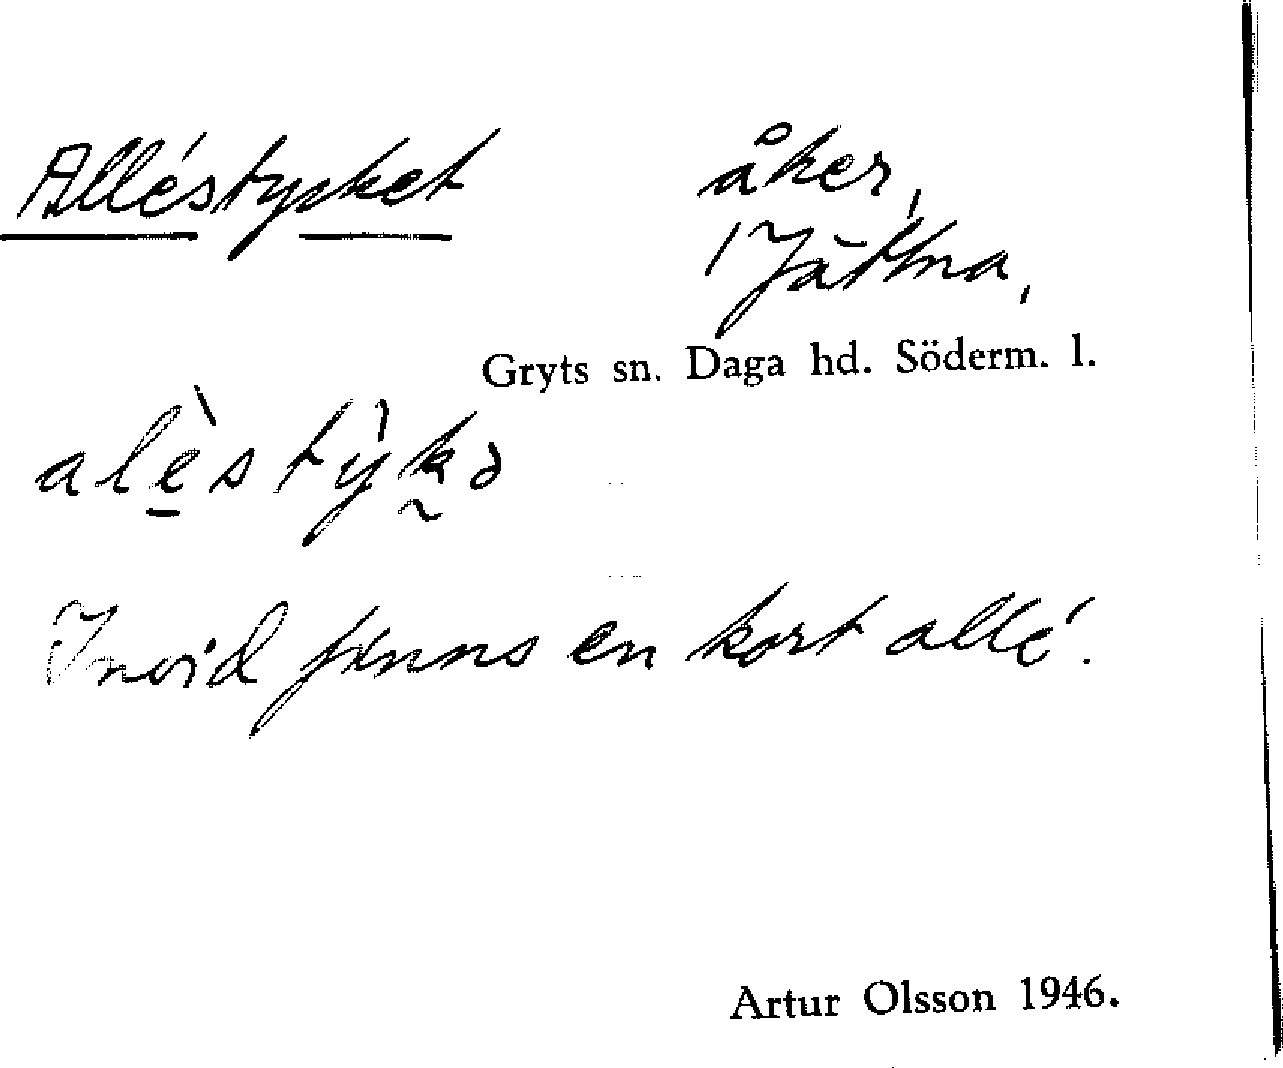 Alléstycket åker,
1 Jättna,
Gryts sn. Daga hd. Söderm. l.
alèstỳkə
Invid finns en kort allé.
Artur Olsson 1946.